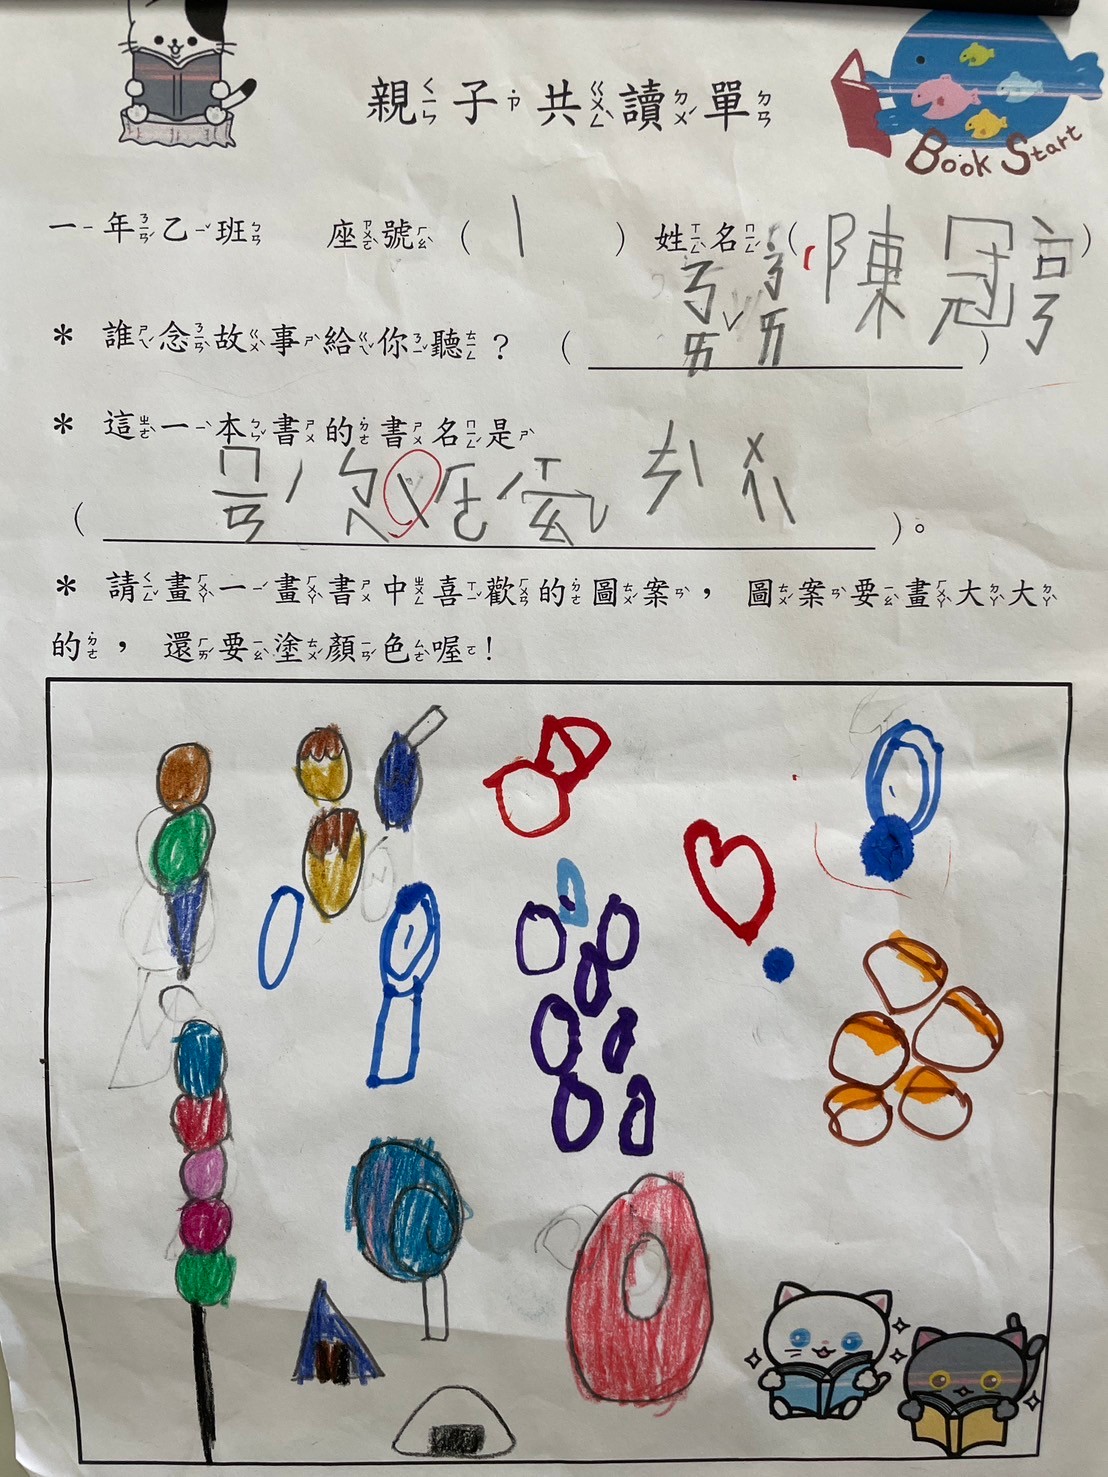 親子共讀單
Book Start
一年乙班 座號(1) 姓名(陳冠亨)
* 誰念故事給你聽? (ㄋㄞˇㄋㄞ)
* 這一本書的書名是
( )。
* 請畫一畫書中喜歡的圖案，圖案要畫大大
的，還要塗顏色喔!